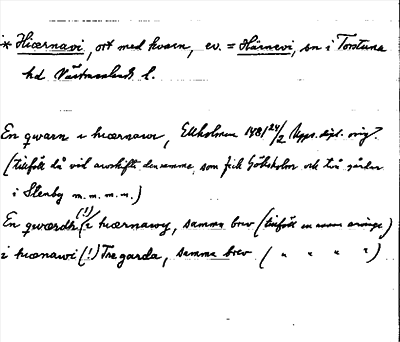 * Hiærnawi, ort med kvarn, ev. = Härnevi, sn i Torstuna
hd Västmanlands l.
En qwarn i hiærnawi, Ekolsund 1481 24/2 Upps. dipl. orig.
(tillföll då väl avskifte densamma, som fick Göksholm och två gårdar
i Stenby m.m.m.m.)
En qwærdh (!) i hiærnawy, samma brev (tillföll en annan arvinge)
i hiænawi (!) Tregarda, samma brev ( " " " " )